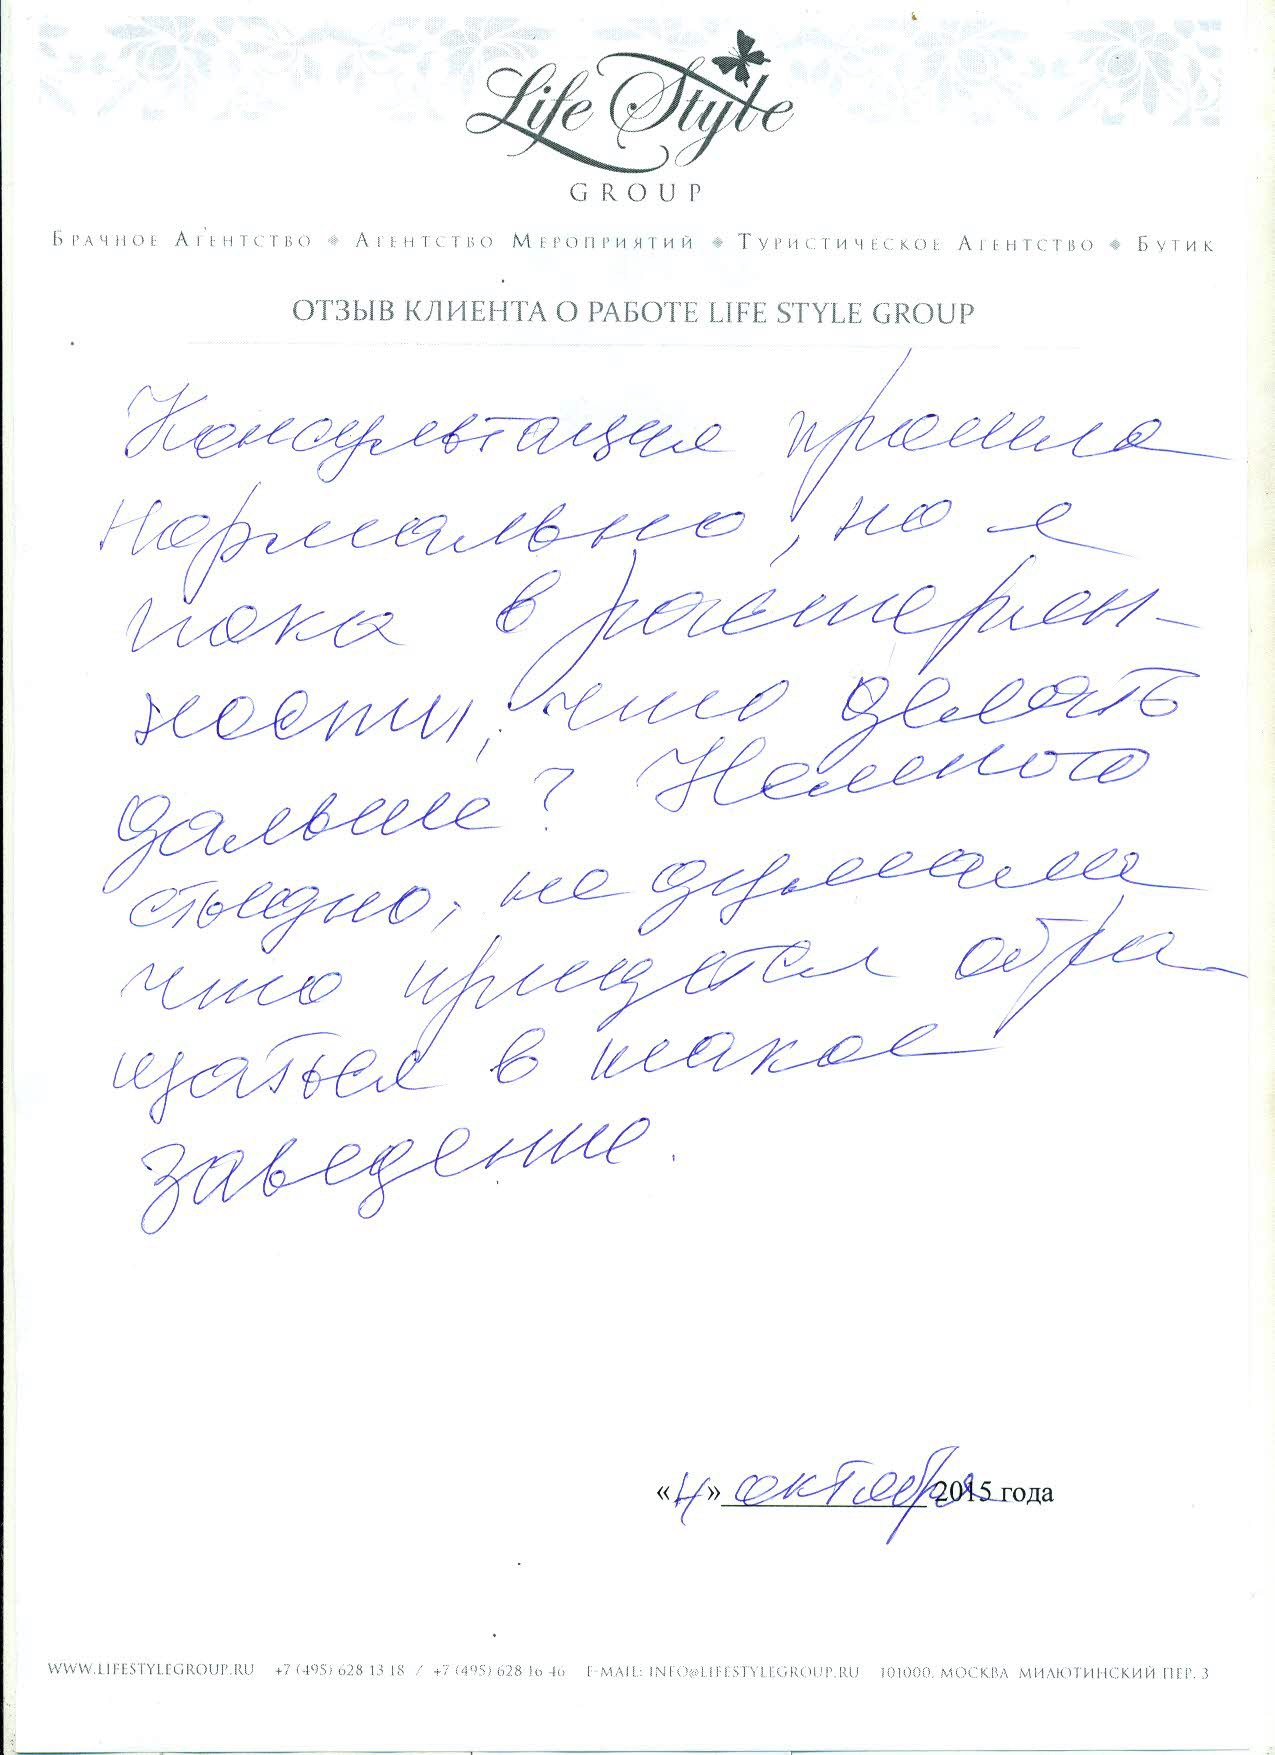 Life Style
GROUP
БРАЧНОЕ АГЕНТСТВО АГЕНТСТВО МЕРОПРИЯТИЙ ТУРИСТИЧЕСКОЕ АГЕНТСТВО БУТИК
ОТЗЫВ КЛИЕНТА О РАБОТЕ LIFE STYLE GROUP
Консультация прошла
нормально, но я
пока в растерян-
ности, что делать
дальше? Немного
стыдно, не думала
что придется обра-
щаться в такое
заведение.
«4» октября 2015 года
WWW.LIFESTYLEGROUP.RU +7 (495) 628 13 18 / +7 (495) 628 16 46 E-MAIL: INFO@LIFESTYLEGROUP.RU 101000, МОСКВА МИЛЮТИНСКИЙ ПЕР. 3